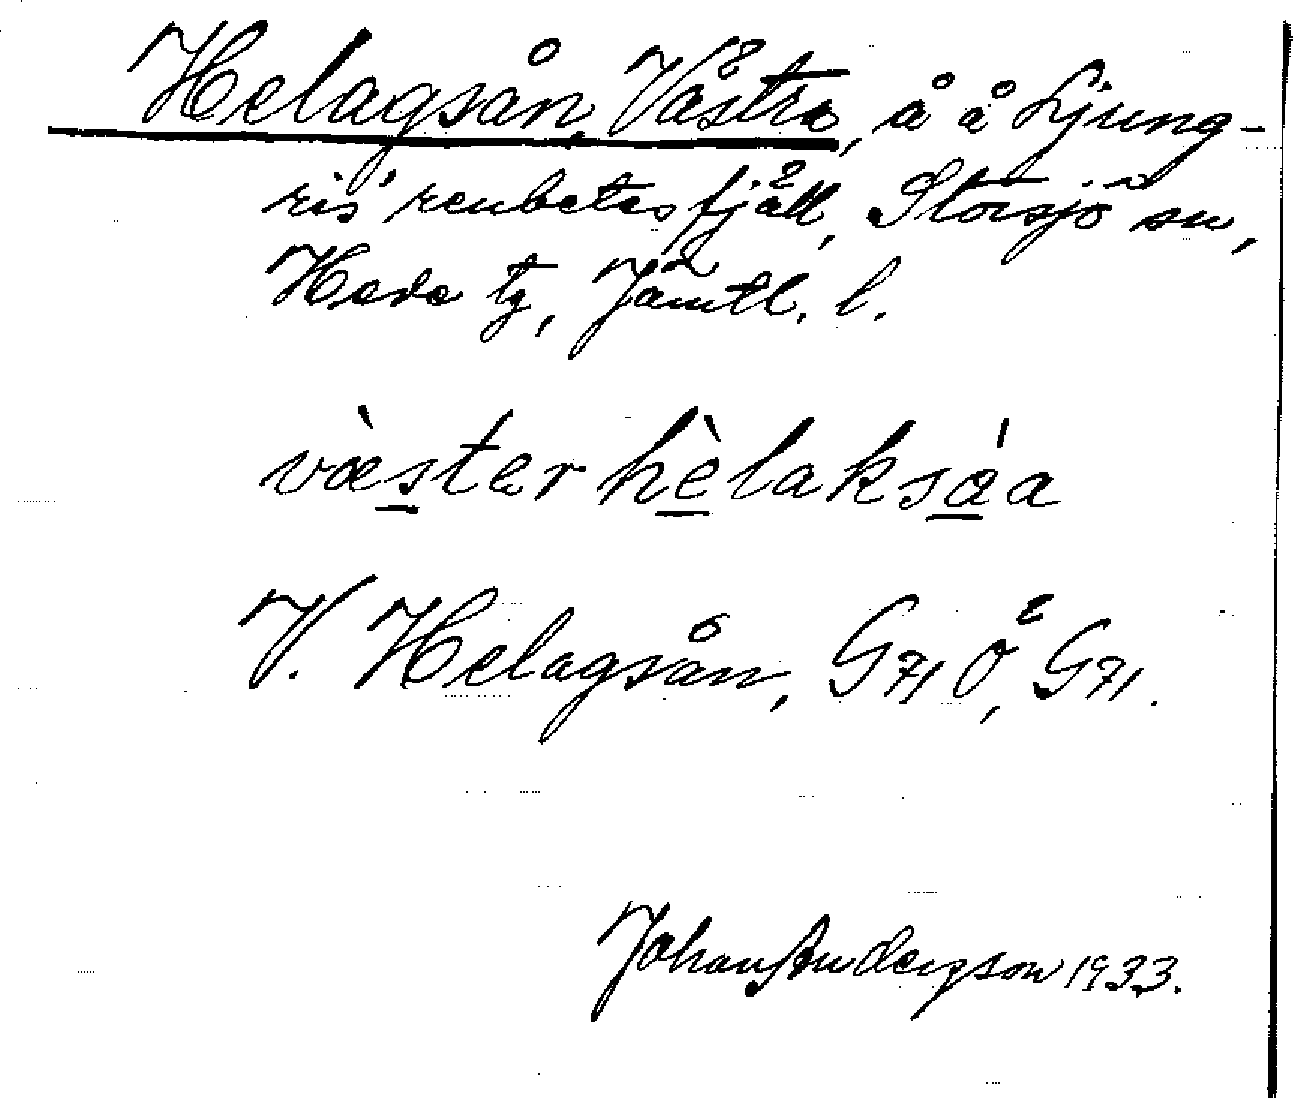 Helagsån, Västra, å å Ljung-
ris' renbetesfjäll, Storsjö sn,
Hede tg, Jämtl. l.
væ̀ster hèlaksáa
V. Helagsån, G 71 Ö, G 71.
Johan Anderson 1933.